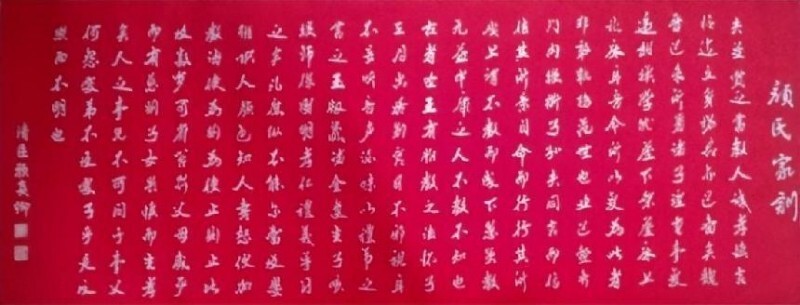 顔氏家訓
夫聖賢之書教人誠孝慎言
檢迹立身揚名亦已備矣魏
晉已來所著諸子理重事複
遞相模學猶屋下架屋床上
施床耳吾今所以復為此者
非敢軌物范世也業已整齊
門內提撕子孫夫同言而信
信其所親同命而行行其所
服上智不教而成下愚雖教
無益中庸之人不教不知也
古者聖王有胎教之法懷子
三月出居別宮目不邪視耳
不妄聽音聲滋味以禮節之
書之玉版藏諸金匱生子咳
提師保固明孝仁禮義導習
之矣凡庶縱不能爾當及嬰
稚識人顏色知人喜怒便加
教誨使為則為使止則止比
及數歲可省笞罰父母威嚴
而有慈則子女畏慎而生孝
矣人之事兄不可同于事父
何怨愛弟不及愛子乎是反
照而不明也
清臣顏真卿